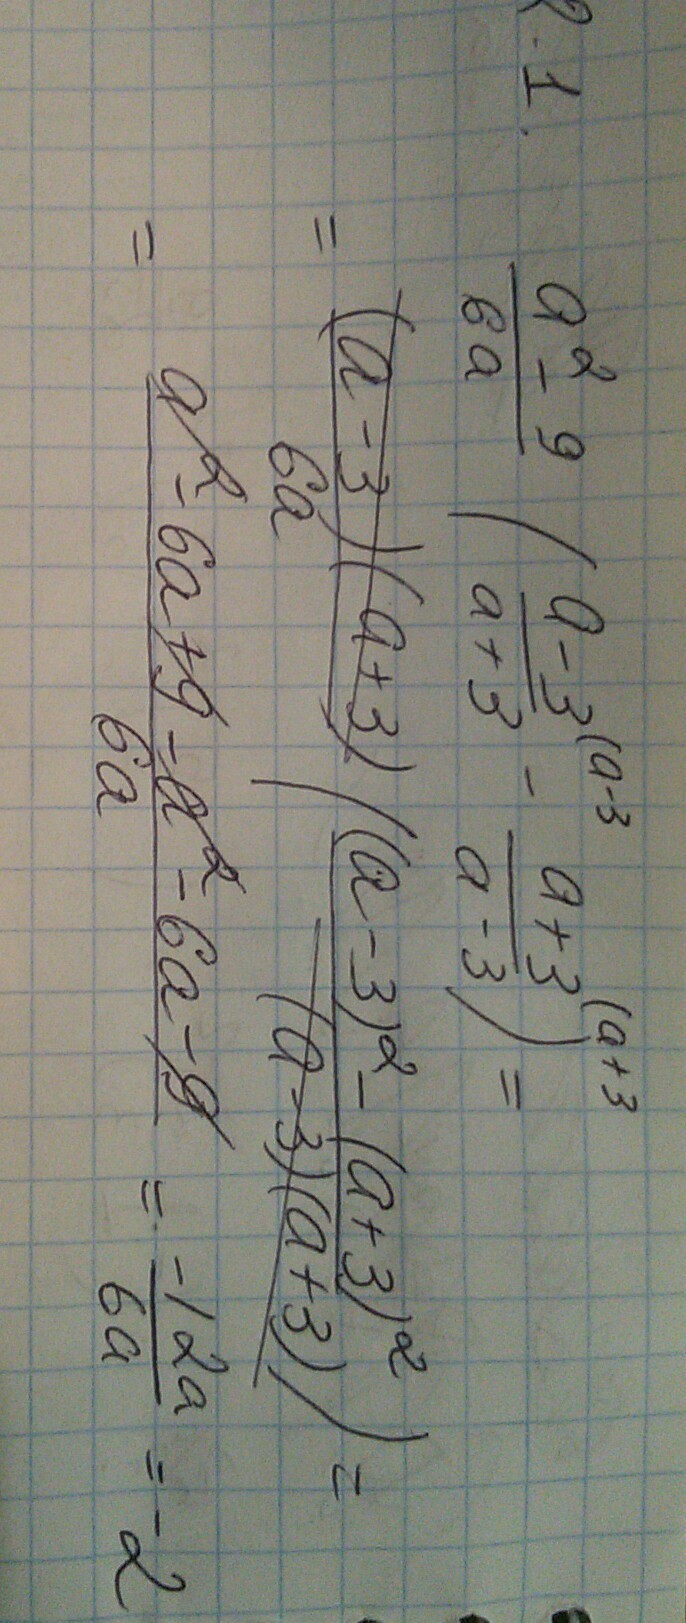 2.1. (a² - 9)/(6a) ((a - 3)/(a + 3) (a-3 - (a + 3)/(a - 3) (a+3) =
= ((a - 3)(a + 3))/(6a) (((a - 3)² - (a + 3)²)/((a - 3)(a + 3))) =
= (a² - 6a + 9 - a² - 6a - 9)/(6a) = (-12a)/(6a) = -2